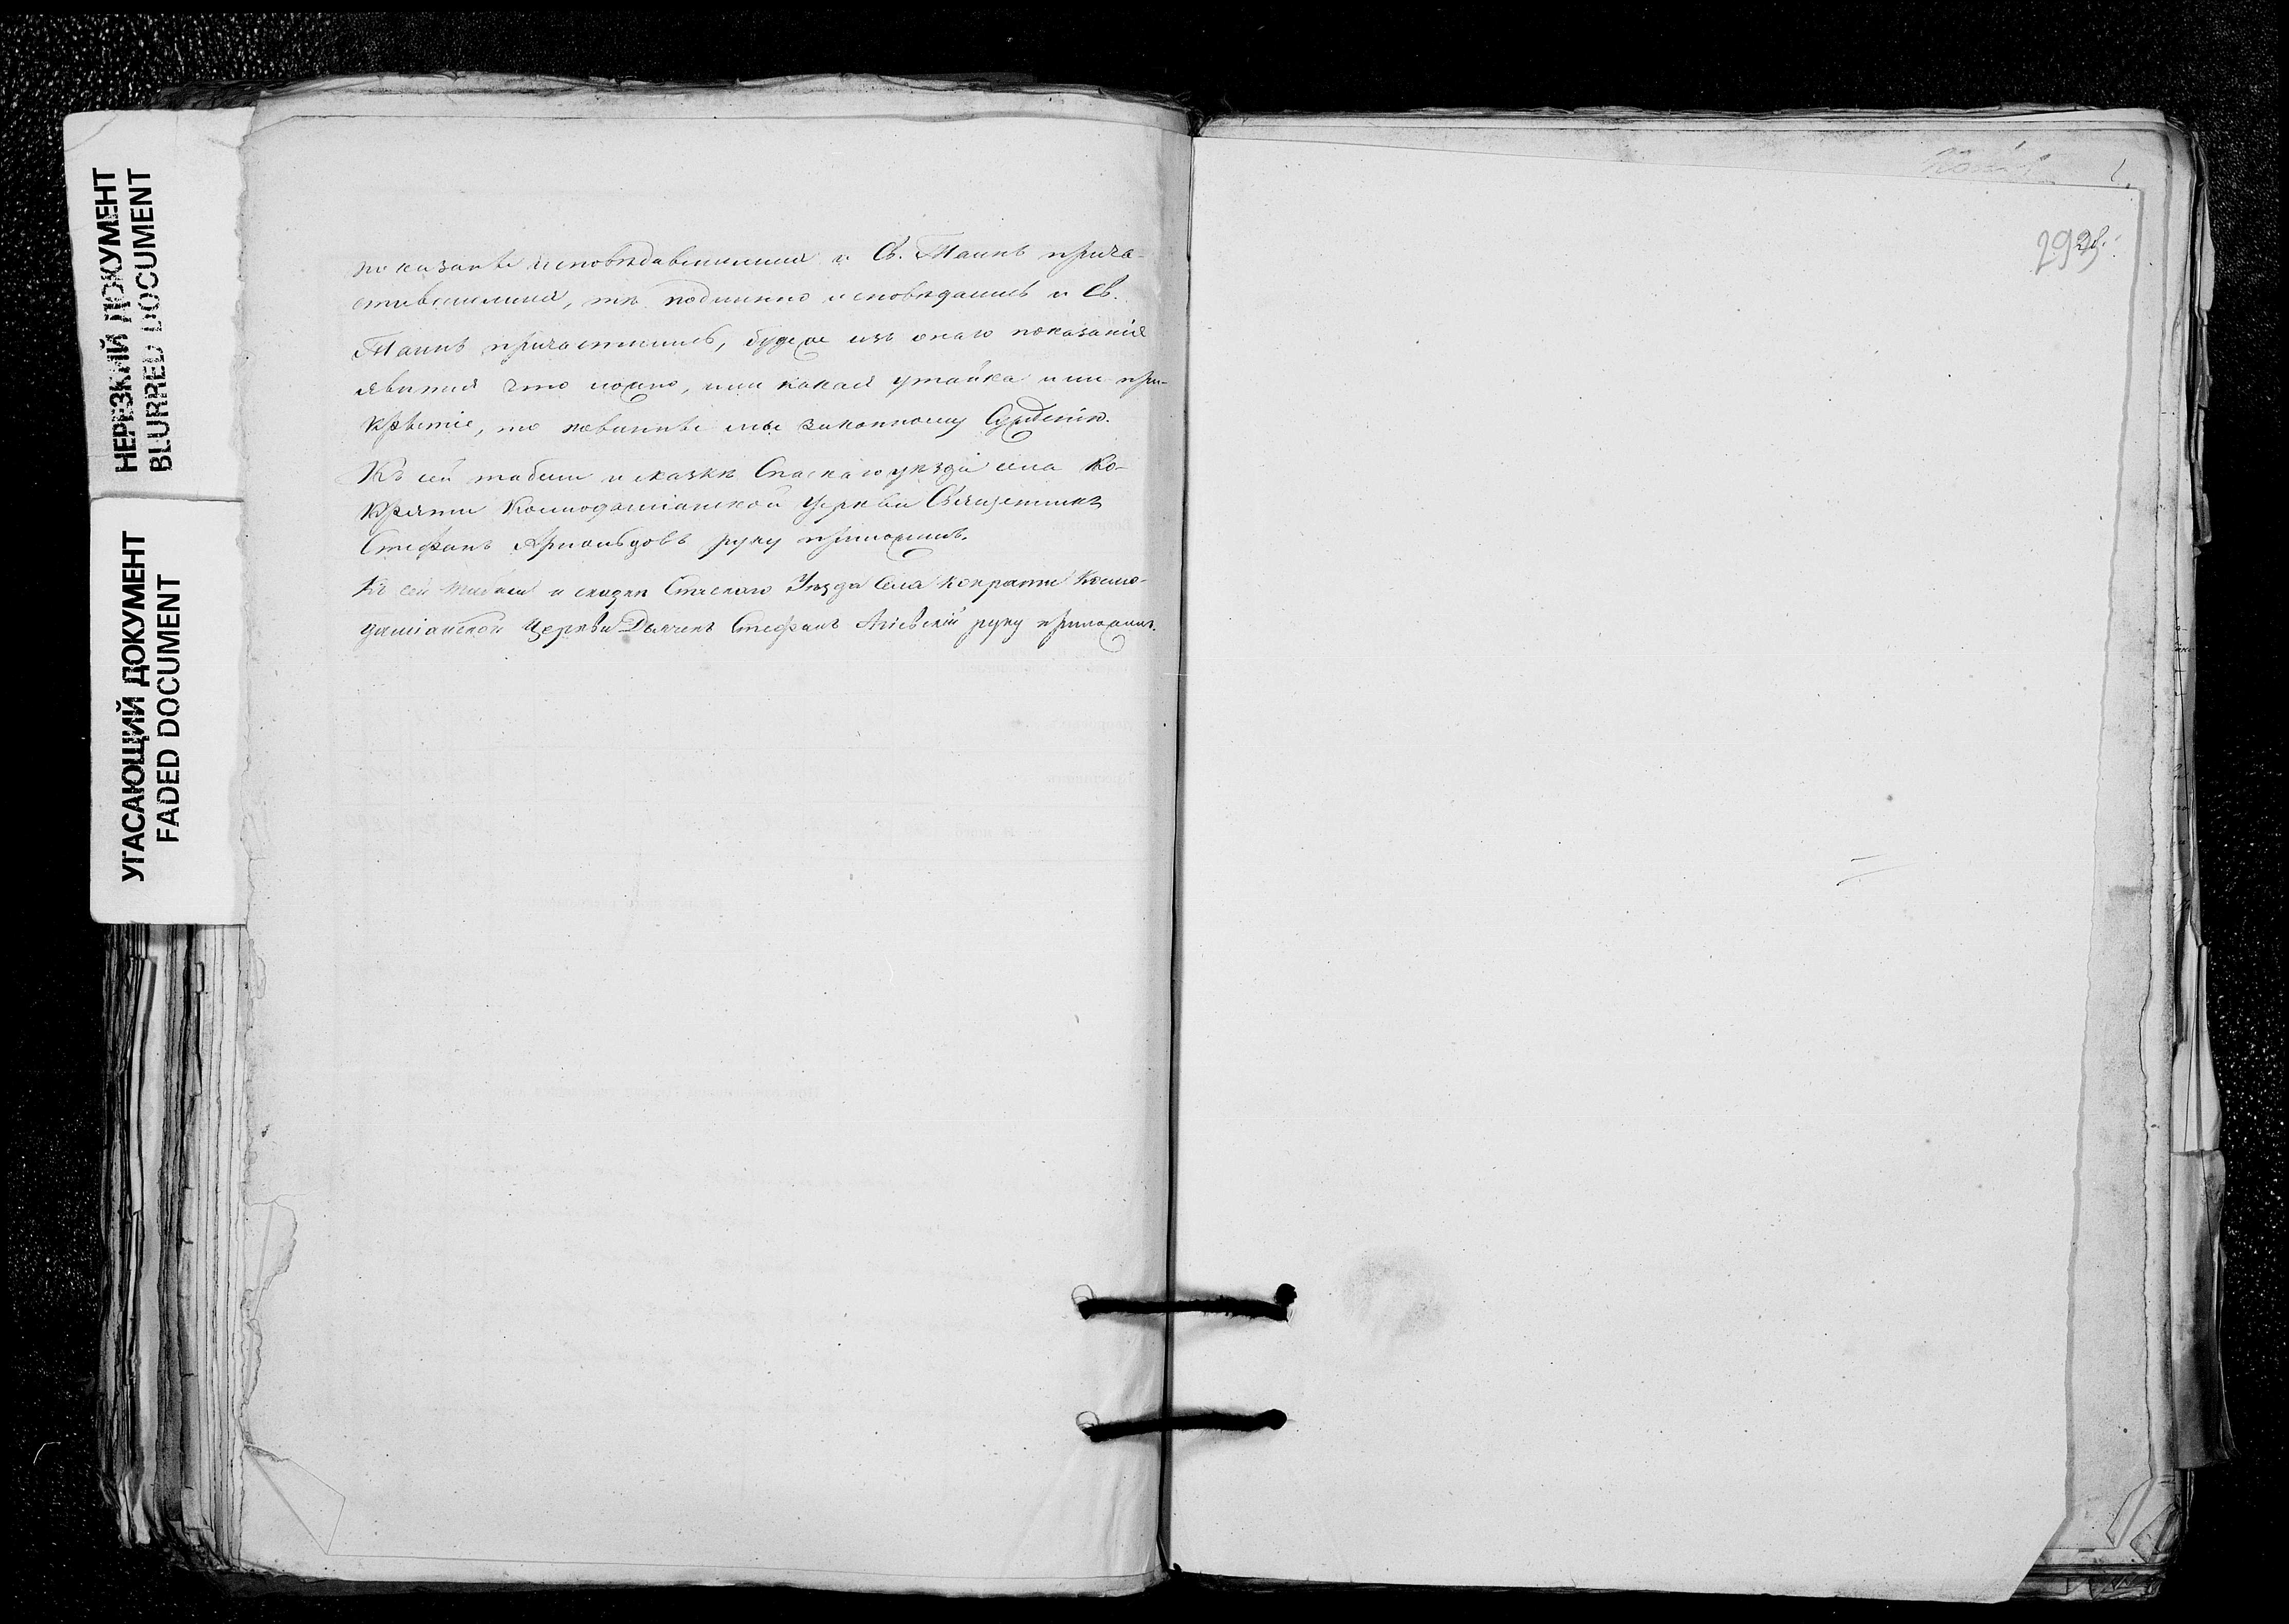 НЕРЕЗКИЙ ДОКУМЕНТ
BLURRED DOCUMENT
УГАСАЮЩИЙ ДОКУМЕНТ
FADED DOCUMENT
показаны исповѣдавшимися и Св. Таинъ прича-
стившимися, тѣ подлинно исповѣдались и Св.
Таинъ причастились, буде же изъ онаго показанія
явится что ложно, или какая утайка или при-
крытіе, то повинны мы законному Сужденію.
Къ сей табели и сказкѣ Спаскаго уѣзда села Ко-
кряти Космодаміанской Церкви Священникъ
Стефанъ руку приложилъ.
Къ сей табели и сказкѣ Спаскаго Уѣзда Села Кокряти Космо-
даміанской Церкви Дьячекъ Стефанъ руку приложилъ.